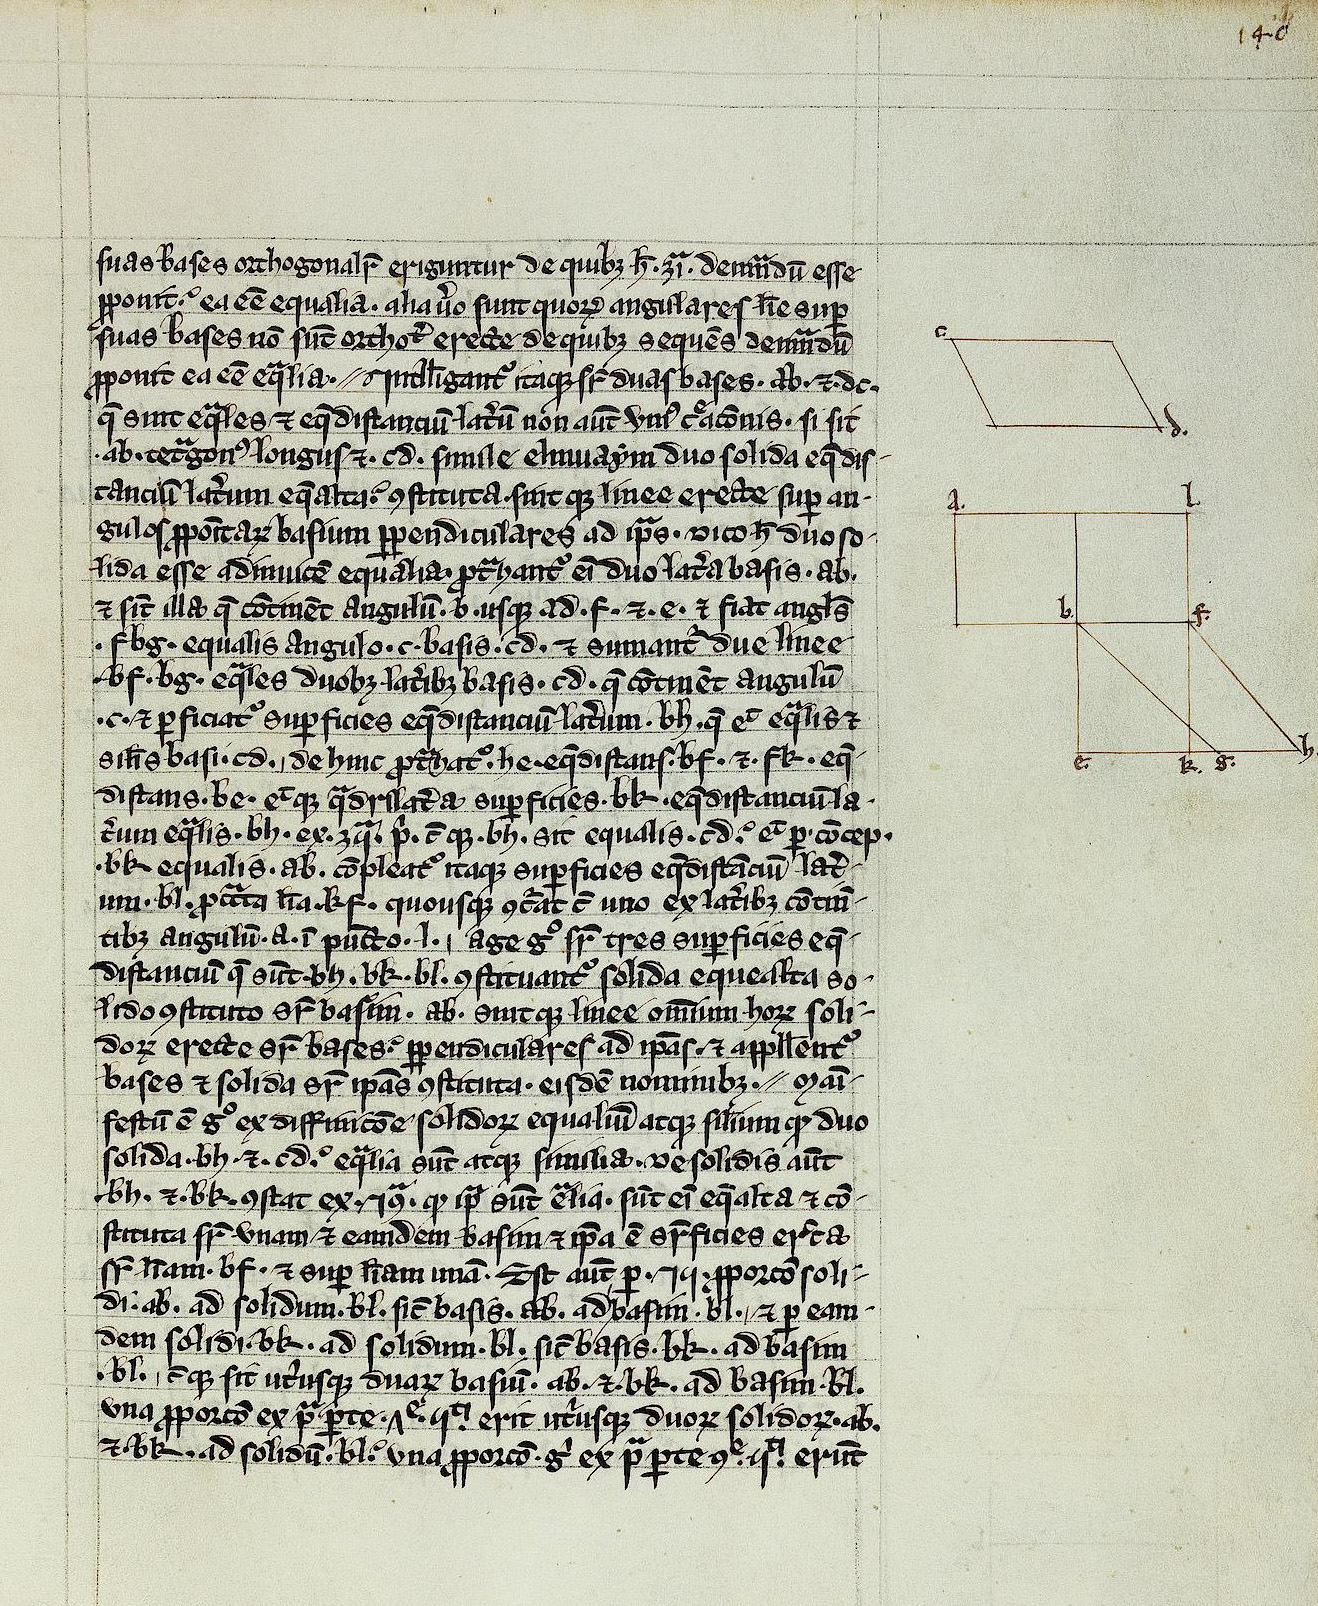 148
suas bases orthogonalr̄ eriguntur de quibꝫ h̄. 31. demr̄andū esse
ꝓponit᷒. ea eē equalia. alia ṽo sunt quoꝝ angulares līe suꝑ
suas bases nō sūt orthoᵗ erecte de quibꝫ sequēs demr̄andū
ꝓponit ea eē eq̄lia. // Intelligant᷒ itaqꝫ sr̄ duas bases. ab. ⁊. dc.
q̄ sint eq̄les ⁊ eq̄distanciū lat̄ū non aūt vni᷒ c̄acōnis. si sit
.ab. tet̄gon᷒ longus ⁊. cd. simile elmuaẏm duo solida eq̄dis-
tanciū lat̄um eq̄alta᷒ ꝯstituta. sint qꝫ linee erecte suꝑ an-
gulos ꝓpōitaꝝ basium ꝑpendiculares ad ip̄as. dico h̄ duo so-
lida esse adinuicē equalia. ꝓt̄hant᷒ ei̅ duo lat̄a basis. ab.
⁊ sīt illa q̄ cōtinēt angulū. b. usqꝫ ad. f. ⁊. e. ⁊ fiat angl̄s
.fbg. equalis angulo. c. basis. cd. ⁊ sumant᷒ due linee
.bf. bg. eq̄les duobꝫ lat̄ibꝫ basis. cd. q̄ cōtinēt angulū
.c. ⁊ ꝑficiat᷒ suꝑficies eq̄distanciū lat̄um. bh. q̄ ēt eq̄lis ⁊
sil̄is basi. cd., dehinc ꝓt̄hat᷒. he. eq̄distans. bf. ⁊. fk. eq̄-
distans. be. ētqꝫ q̄drilat̄a suꝑficies. bk. eq̄distanciū la-
t̄um eq̄lis. bh. ex. 3q̄. p̄. c̄qꝫ. bh. sit equalis. cd᷒. ēt ꝑ. cōcep.
.bk equalis. ab. cōpleat᷒ itaqꝫ suꝑficies eq̄distāciū lat̄-
um. bl. ꝓt̄cta līa. kf. quousqꝫ ꝯc̄rat c̄ uno ex lat̄ibꝫ cōtin̄-
tibꝫ angulū. a. ī pūcto. l., age gᵒ sr̄ tres suꝑficies eq̄-
distanciū q̄ sūt. bh. bk. bl. ꝯstituant᷒ solida equealta so-
lido ꝯstituto sr̄ basim. ab. sintqꝫ linee om̄ium hoꝝ soli-
doꝝ erecte sr̄ bases᷒. ꝑpendiculares ad ip̄as. ⁊ appll̄ent᷒
bases ⁊ solida sr̄ ip̄as ꝯstituta. eisdē nominibꝫ. // Māi-
festū ē gᵒ ex diffinicōe solidoꝝ equaliū atqꝫ sil̄ium qꝫ duo
solida. bh. ⁊. cd᷒. eq̄lia sūt atqꝫ similia. de solidis aūt
.bh. ⁊. bk. ꝯstat ex. qꝫ ip̄a sūt eq̄lia. sūt ei̅ eq̄alta ⁊ cō-
stituta sr̄ vnam ⁊ eamdem basim ⁊ ip̄a ē sr̄ficies er̄cta
sr̄ līam. bf. ⁊ suꝑ līam unā. Est aūt ꝑ. ꝓporcō soli-
di. ab. ad solidum. bl. sic̄ basis. ab. ad basim. bl., ⁊ ꝑ eam-
dem solidi. bk. ad solidum. bl. sic̄ basis. bk. ad basim
.bl., c̄qꝫ sit ut̄iusqꝫ duaꝝ basiū. ab. ⁊. bk. ad basim. bl.
vna ꝓporcō ex p̄a ꝑte. erit ut̄iusqꝫ duoꝝ solidoꝝ. ab.
⁊. bk. ad solidū. bl᷒. vna ꝓporcō. gᵒ ex p̄a ꝑte erūt
c
d.
a. l.
b. f.
e. k. g. h.